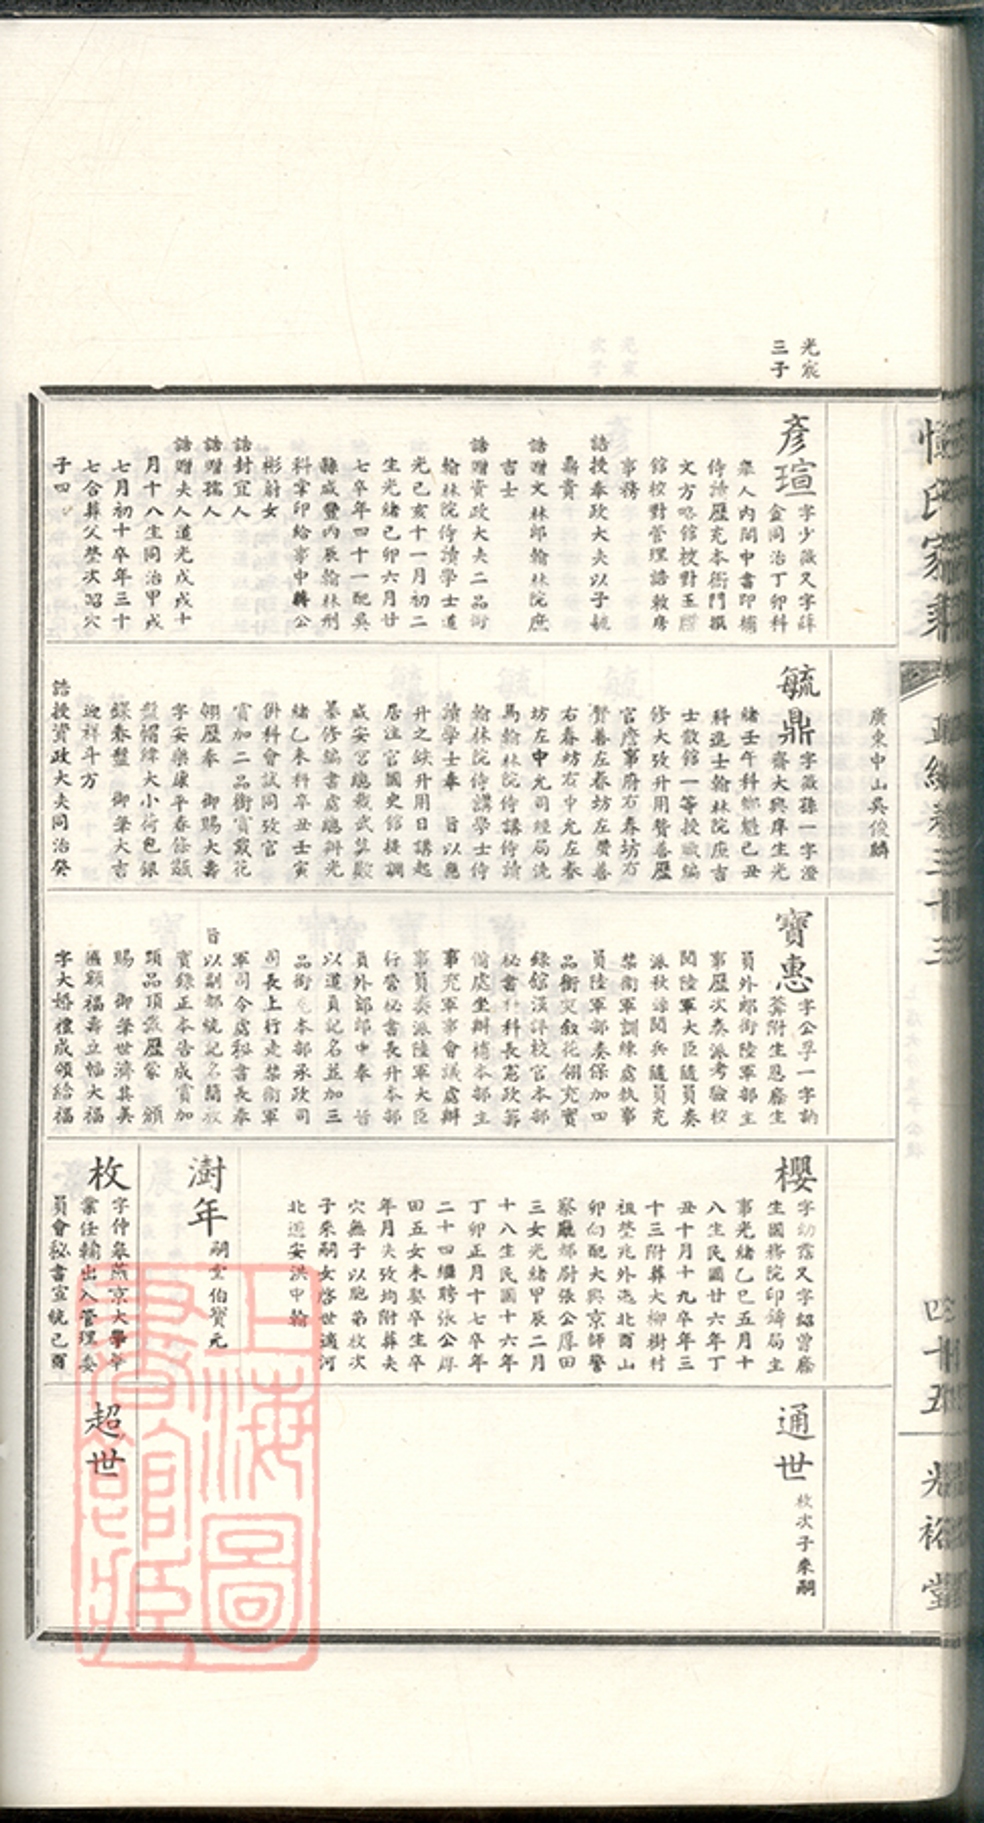 光宸
三子
彥瑄
字少薇又字薛
金同治丁卯科
舉人內閣中書即補
侍讀歷充本衙門撰
文方略館校對玉牒
館校對管理誥敕房
事務
誥授奉政大夫以子毓
鼎貴
誥贈文林郎翰林院庶
吉士
誥贈資政大夫二品銜
翰林院侍讀學士道
光己亥十一月初二
生光緒己卯六月廿
七卒年四十一配吳
縣咸豐丙辰翰林刑
科掌印給事中蔣公
彬蔚女
誥封宜人
誥贈孺人
誥贈夫人道光戊戌十
月十八生同治甲戌
七月初十卒年三十
七合葬父塋次昭穴
子四
廣東中山吳俊麟
毓鼎
字薇孫一字澄
齋大興庠生光
緒壬午科鄉魁己丑
科進士翰林院庶吉
士散館一等授職編
修大攷升用贊善歷
官詹事府右春坊右
贊善左春坊左贊善
右春坊右中允左春
坊左中允司經局洗
馬翰林院侍講侍讀
翰林院侍講學士侍
讀學士奉 旨以應
升之缺升用日講起
居注官國史館提調
咸安宮總裁武英殿
纂修編書處總辦光
緒乙未科辛丑壬寅
併科會試同攷官
賞加二品銜賞戴花
翎歷奉 御賜大壽
字安樂康平春條
帽緯大小荷包銀
錁春盤 御筆大吉
迎祥斗方
誥授資政大夫同治癸
寶惠
字公孚一字訥
菴附生恩廕生
員外郎銜陸軍部主
事歷次奏派考驗校
閱陸軍大臣隨員奏
派秋操閱兵隨員充
禁衛軍訓練處執事
員陸軍部奏保加四
品銜
錄館漢詳校官本部
秘書科科長憲政籌
備處坐辦補本部主
事充軍事會議處辦
事員奏派陸軍大臣
行營秘書長升本部
員外郎郎中奉 旨
以道員記名並加三
品銜 本部承政司
司長上行走禁衛軍
軍司令處秘書長奉
旨以副都統記名簡放
實錄正本告成賞加
頭品頂戴歷蒙 頒
賜 御筆世濟其美
匾額福壽立幅大福
字大婚禮成頒給福
櫻
字幼霑又字紹曾廕
生國務院印鑄局主
事光緒乙巳五月十
八生民國廿六年丁
丑十月十九卒年三
十三附葬大柳樹村
祖塋兆外迤北酉山
卯向配大興京師警
察廳都尉張公厚田
三女光緒甲辰二月
十八生民國十六年
丁卯正月十七卒年
二十四繼聘張公厚
田五女未娶卒生卒
年月失攷均附葬夫
穴無子以胞弟枚次
子來嗣女啓世適河
北遵安洪中翰
澍年
嗣堂伯寶元
枚
字仲皋燕京大學畢
業任輸出入管理委
員會秘書宣統己酉
通世
枚次子來嗣
超世
惲氏家乘
四十五
光裕堂
上海圖書館藏